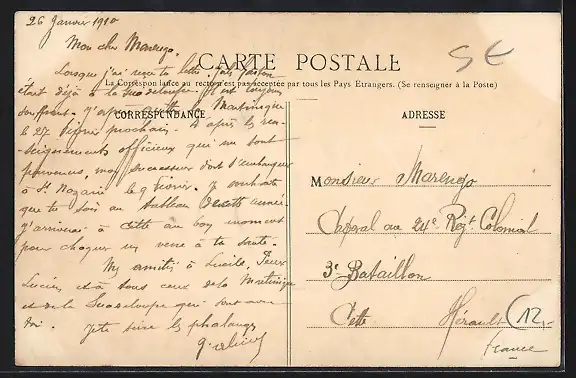 26 Janvier 1910
Mon cher Marengo.
CARTE POSTALE
La Correspondance au recto n'est pas acceptée par tous les Pays Etrangers. (Se renseigner à la Poste)
CORRESPONDANCE
ADRESSE
Lorsque j'ai reçu ta lettre
était déjà à la Guadeloupe. Il est toujours
souffrant. J'espère quitter la Martinique
le 27 février prochain. D'après les ren-
seignements officieux qui me sont
parvenus, mon successeur doit s'embarquer
à St Nazaire le 9 Février. Je souhaite
que tu sois au tableau cette année.
J'arriverai à Cette au bon moment
pour choquer un verre à ta santé.
Mes amitiés à Lucile,
Lucien et à tous ceux de la Martinique
et de la Guadeloupe qui sont avec
toi. Je te serre les phalanges
Monsieur Marengo
Caporal au 24e Regt Colonial
3e Bataillon
Cette
Hérault
France
12,-